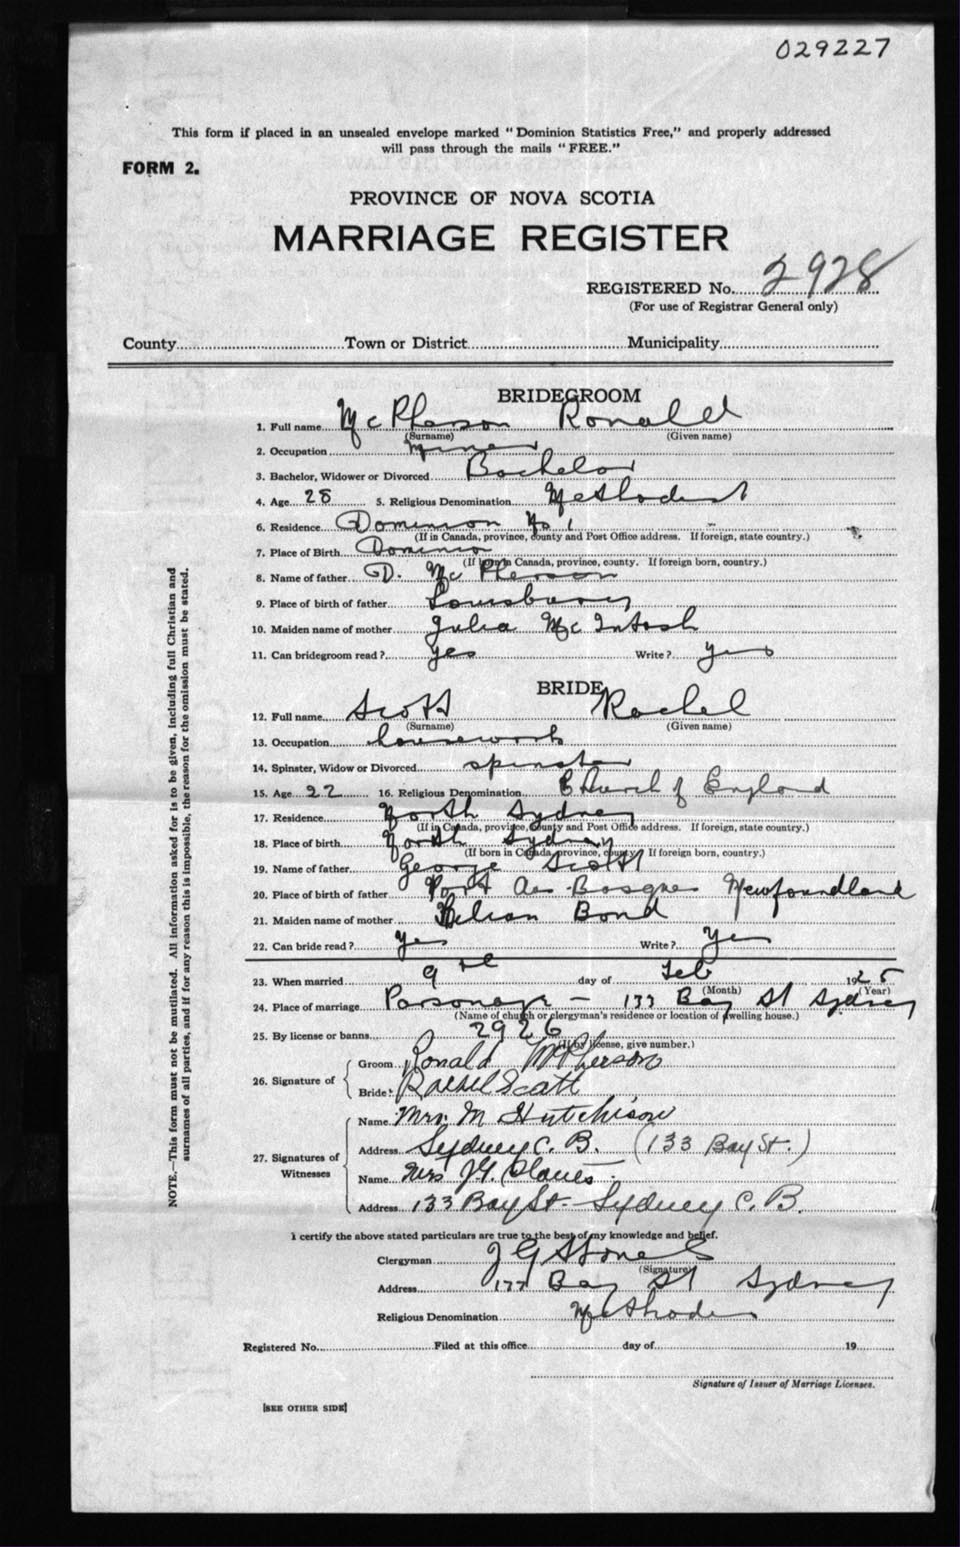 029227
This form if placed in an unsealed envelope marked "Dominion Statistics Free," and properly addressed
will pass through the mails "FREE."
FORM 2.
PROVINCE OF NOVA SCOTIA
MARRIAGE REGISTER
REGISTERED No. 2928
(For use of Registrar General only)
County Town or District Municipality
BRIDEGROOM
1. Full name McPherson Ronald
(Surname) (Given name)
2. Occupation Miner
3. Bachelor, Widower or Divorced Bachelor
4. Age 28 5. Religious Denomination Methodist
6. Residence Dominion No 1
(If in Canada, province, county and Post Office address. If foreign, state country.)
7. Place of Birth Dominion
(If born in Canada, province, county. If foreign born, country.)
8. Name of father D. McPherson
9. Place of birth of father Louisburg
10. Maiden name of mother Julia McIntosh
11. Can bridegroom read? yes Write? yes
BRIDE
12. Full name Scott Rachel
(Surname) (Given name)
13. Occupation housework
14. Spinster, Widow or Divorced spinster
15. Age 22 16. Religious Denomination Church of England
17. Residence North Sydney
(If in Canada, province, county and Post Office address. If foreign, state country.)
18. Place of birth North Sydney
(If born in Canada, province, county. If foreign born, country.)
19. Name of father George Scott
20. Place of birth of father Port Aux Basques Newfoundland
21. Maiden name of mother Bond
22. Can bride read? Yes Write? Yes
23. When married 9th day of Feb 1925
(Month) (Year)
24. Place of marriage Parsonage - 133 Bay St Sydney
(Name of church or clergyman's residence or location of dwelling house.)
25. By license or banns 2926
(If by license, give number.)
26. Signature of
Groom Ronald McPherson
Bride Rachel Scott
27. Signatures of Witnesses
Name Mrs. M Hutchison
Address Sydney C. B. (133 Bay St.)
Name Mrs J.G.
Address 133 Bay St. Sydney C. B.
I certify the above stated particulars are true to the best of my knowledge and belief.
Clergyman J G
(Signature)
Address 133 Bay St Sydney
Religious Denomination Methodist
Registered No. Filed at this office day of 19
Signature of Issuer of Marriage Licenses.
[SEE OTHER SIDE]
NOTE.—This form must not be mutilated. All information asked for is to be given, including full Christian and
surnames of all parties, and if for any reason this is impossible, the reason for the omission must be stated.